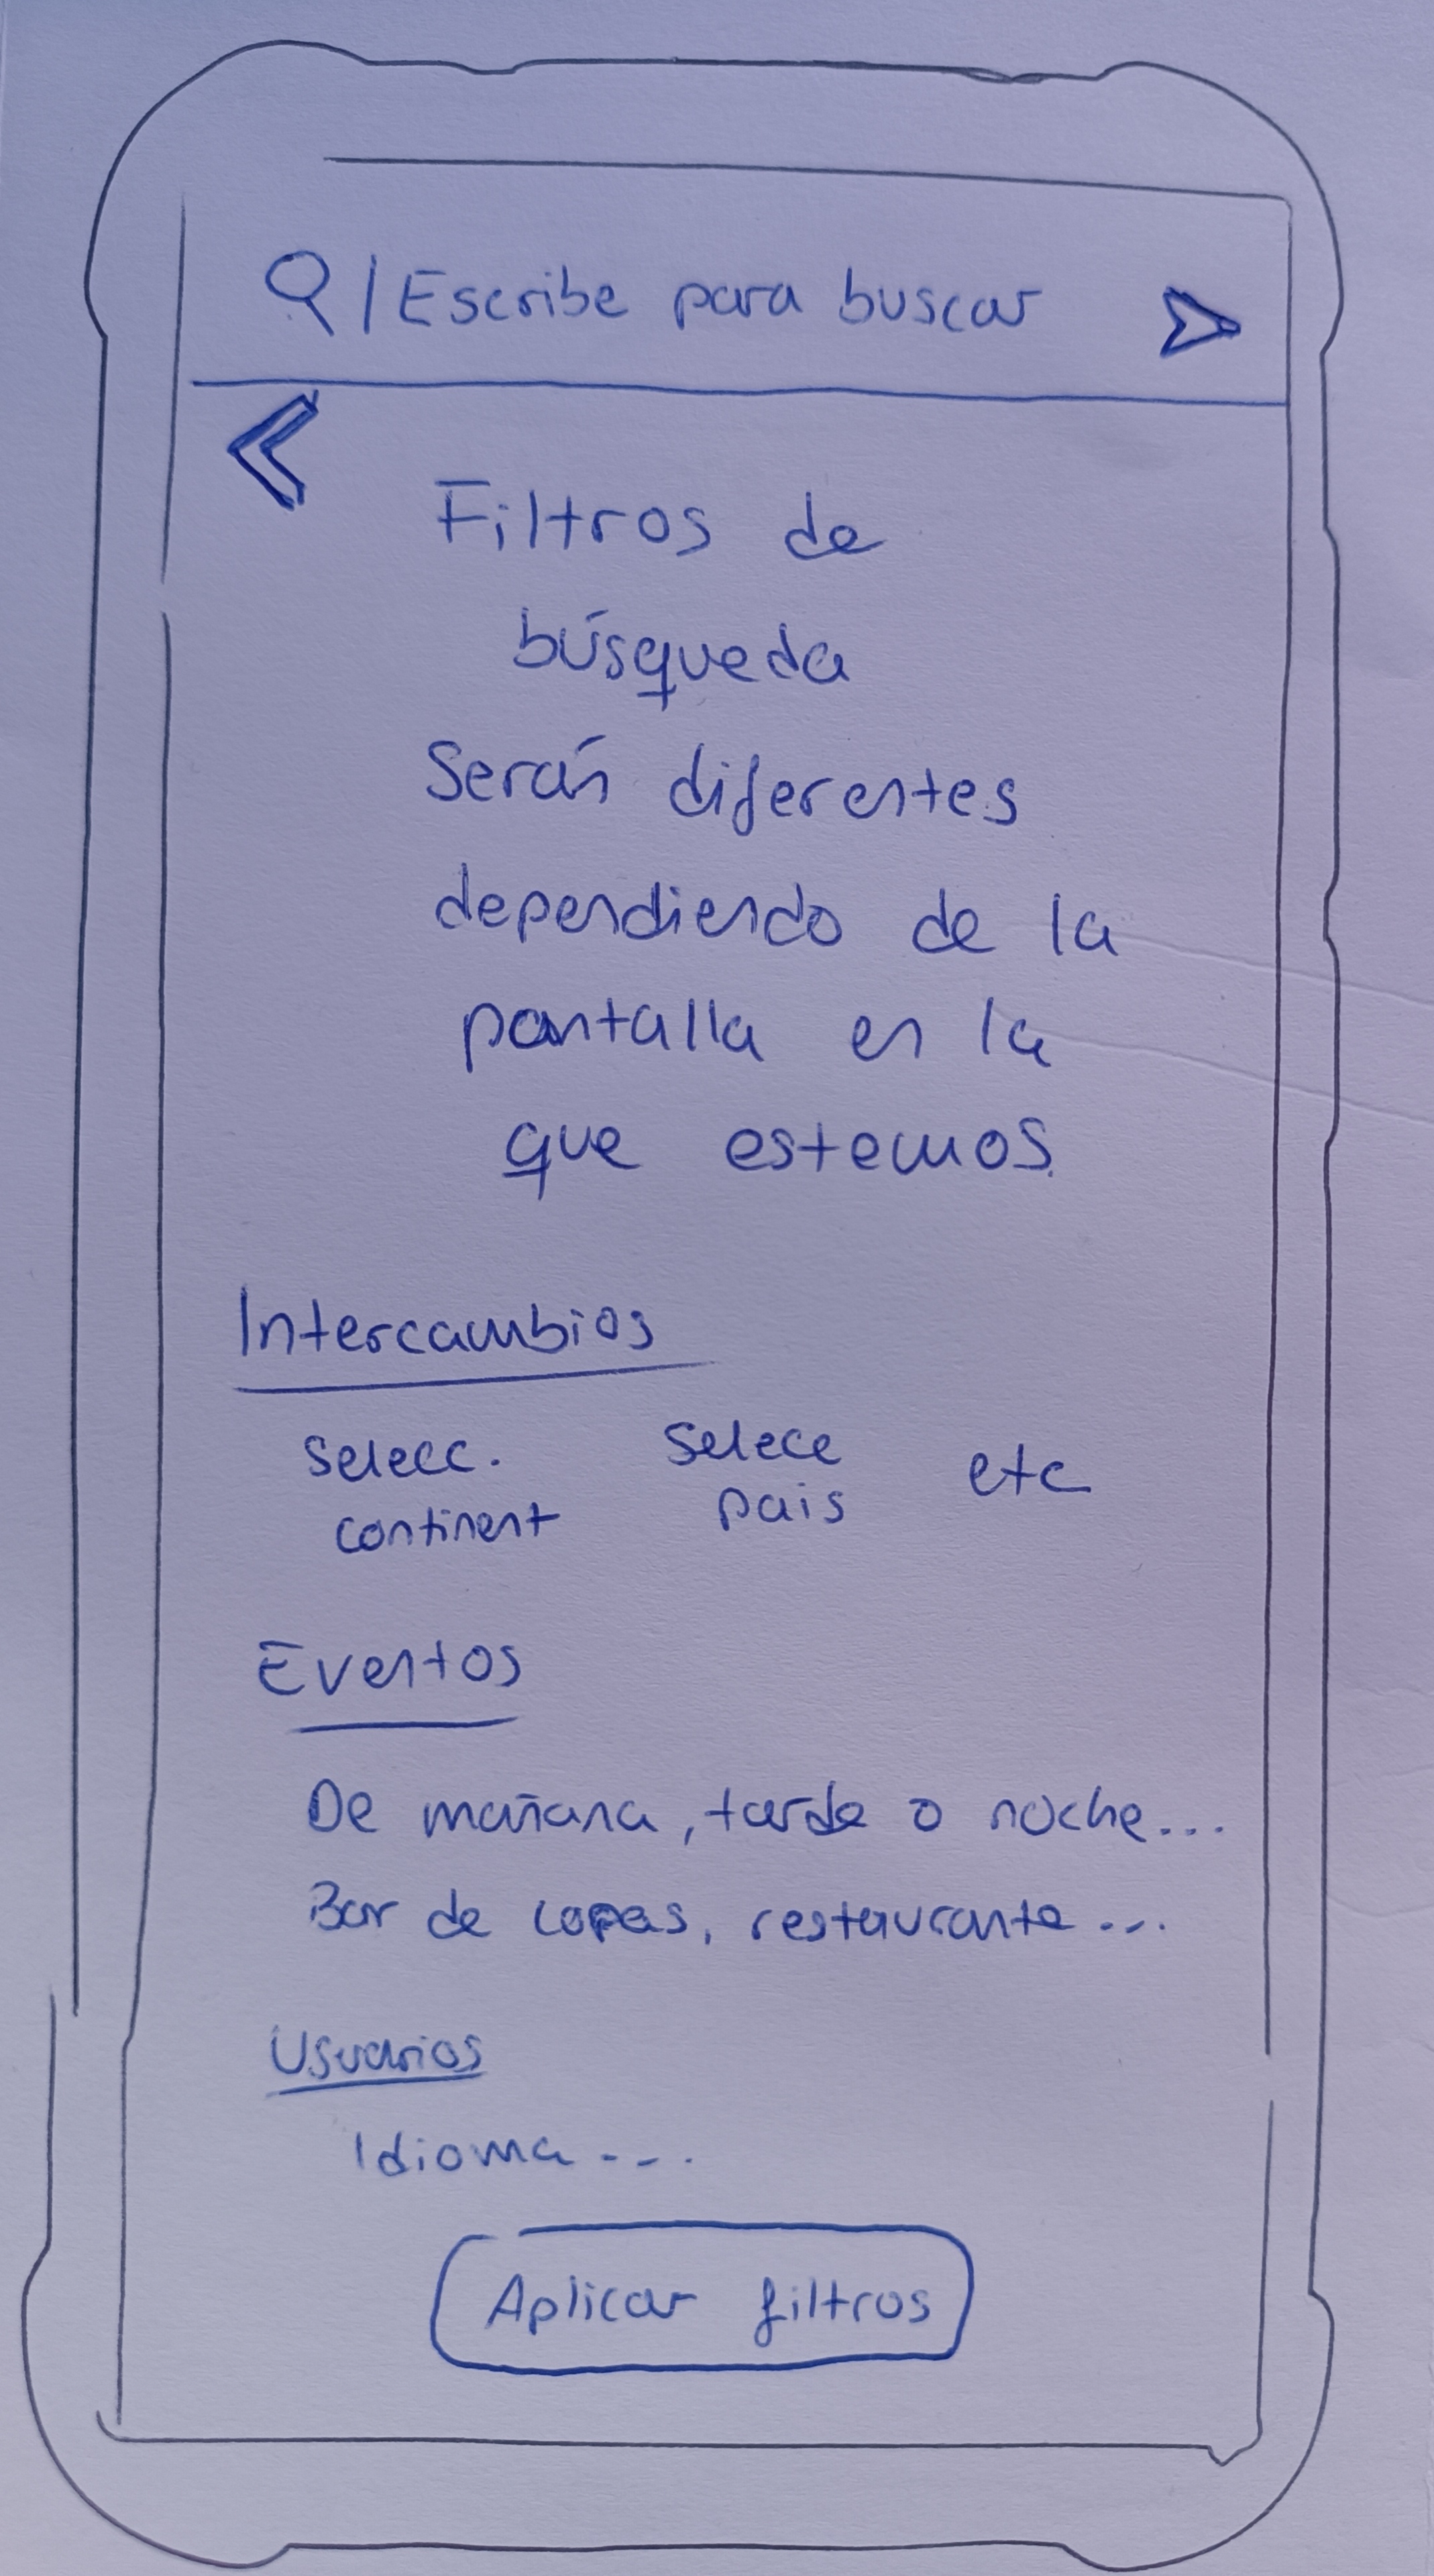 Escribe para buscar
Filtros de
búsqueda
Serán diferentes
dependiendo de la
pantalla en la
que estemos
Intercambios
Selecc. Selecc etc
continent pais
Eventos
De mañana, tarde o noche...
Bar de copas, restaurante...
Usuarios
Idioma...
Aplicar filtros